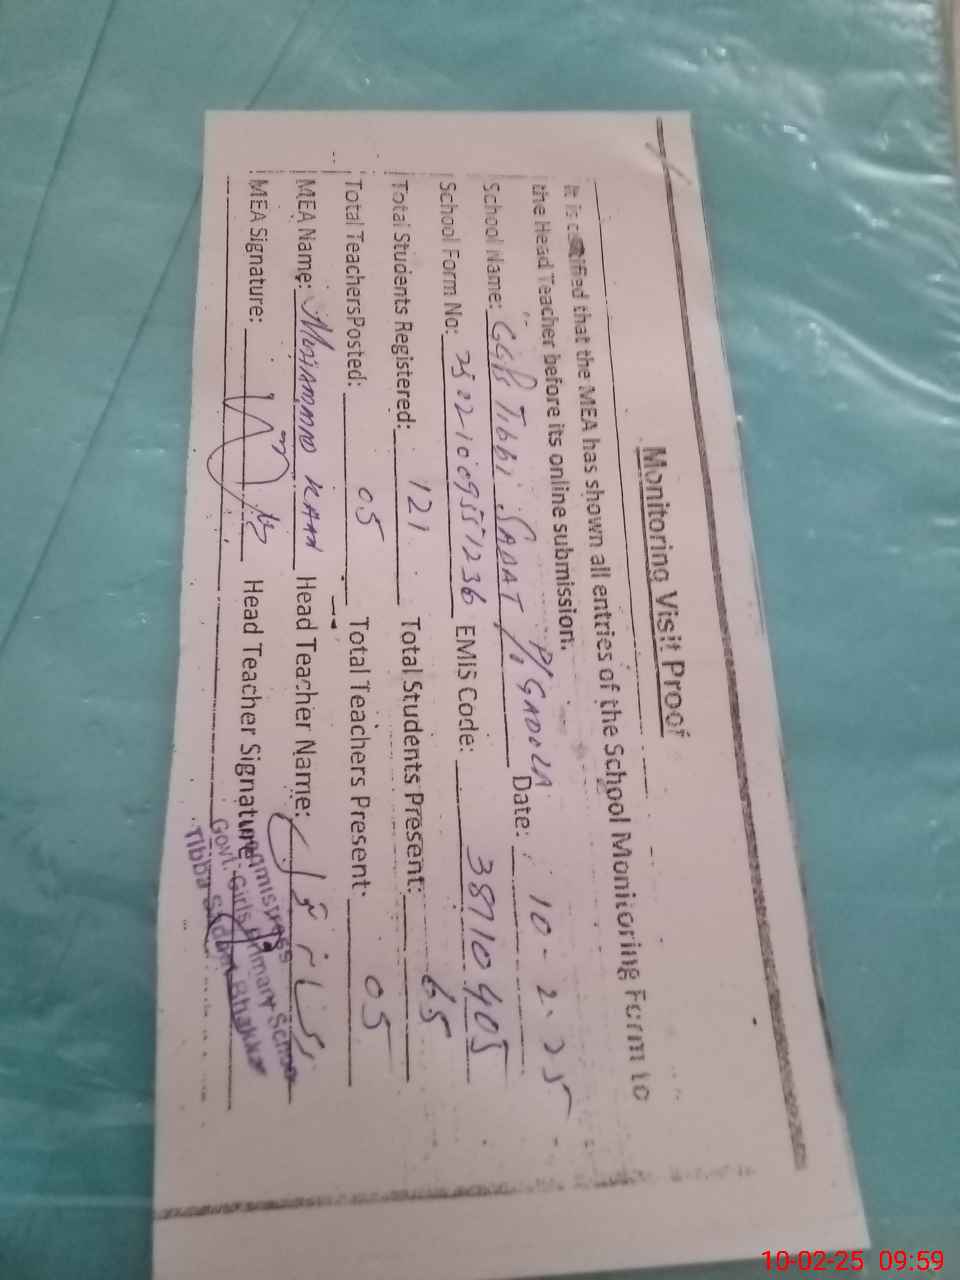 Monitoring Visit Proof
It is certified that the MEA has shown all entries of the School Monitoring Form to
the Head Teacher before its online submission.
School Name: GGPS Tibbi SADAT P/GADOLA Date: 10-2-25
School Form No: EMIS Code: 38710405
Total Students Registered: 121 Total Students Present: 65
Total TeachersPosted: 05 Total Teachers Present: 05
MEA Name: MUHAMMAD KHAN Head Teacher Name:
MEA Signature: Head Teacher Signature:
Govt. Girls Primary School
Tibba Bhakkar
10-02-25 09:59